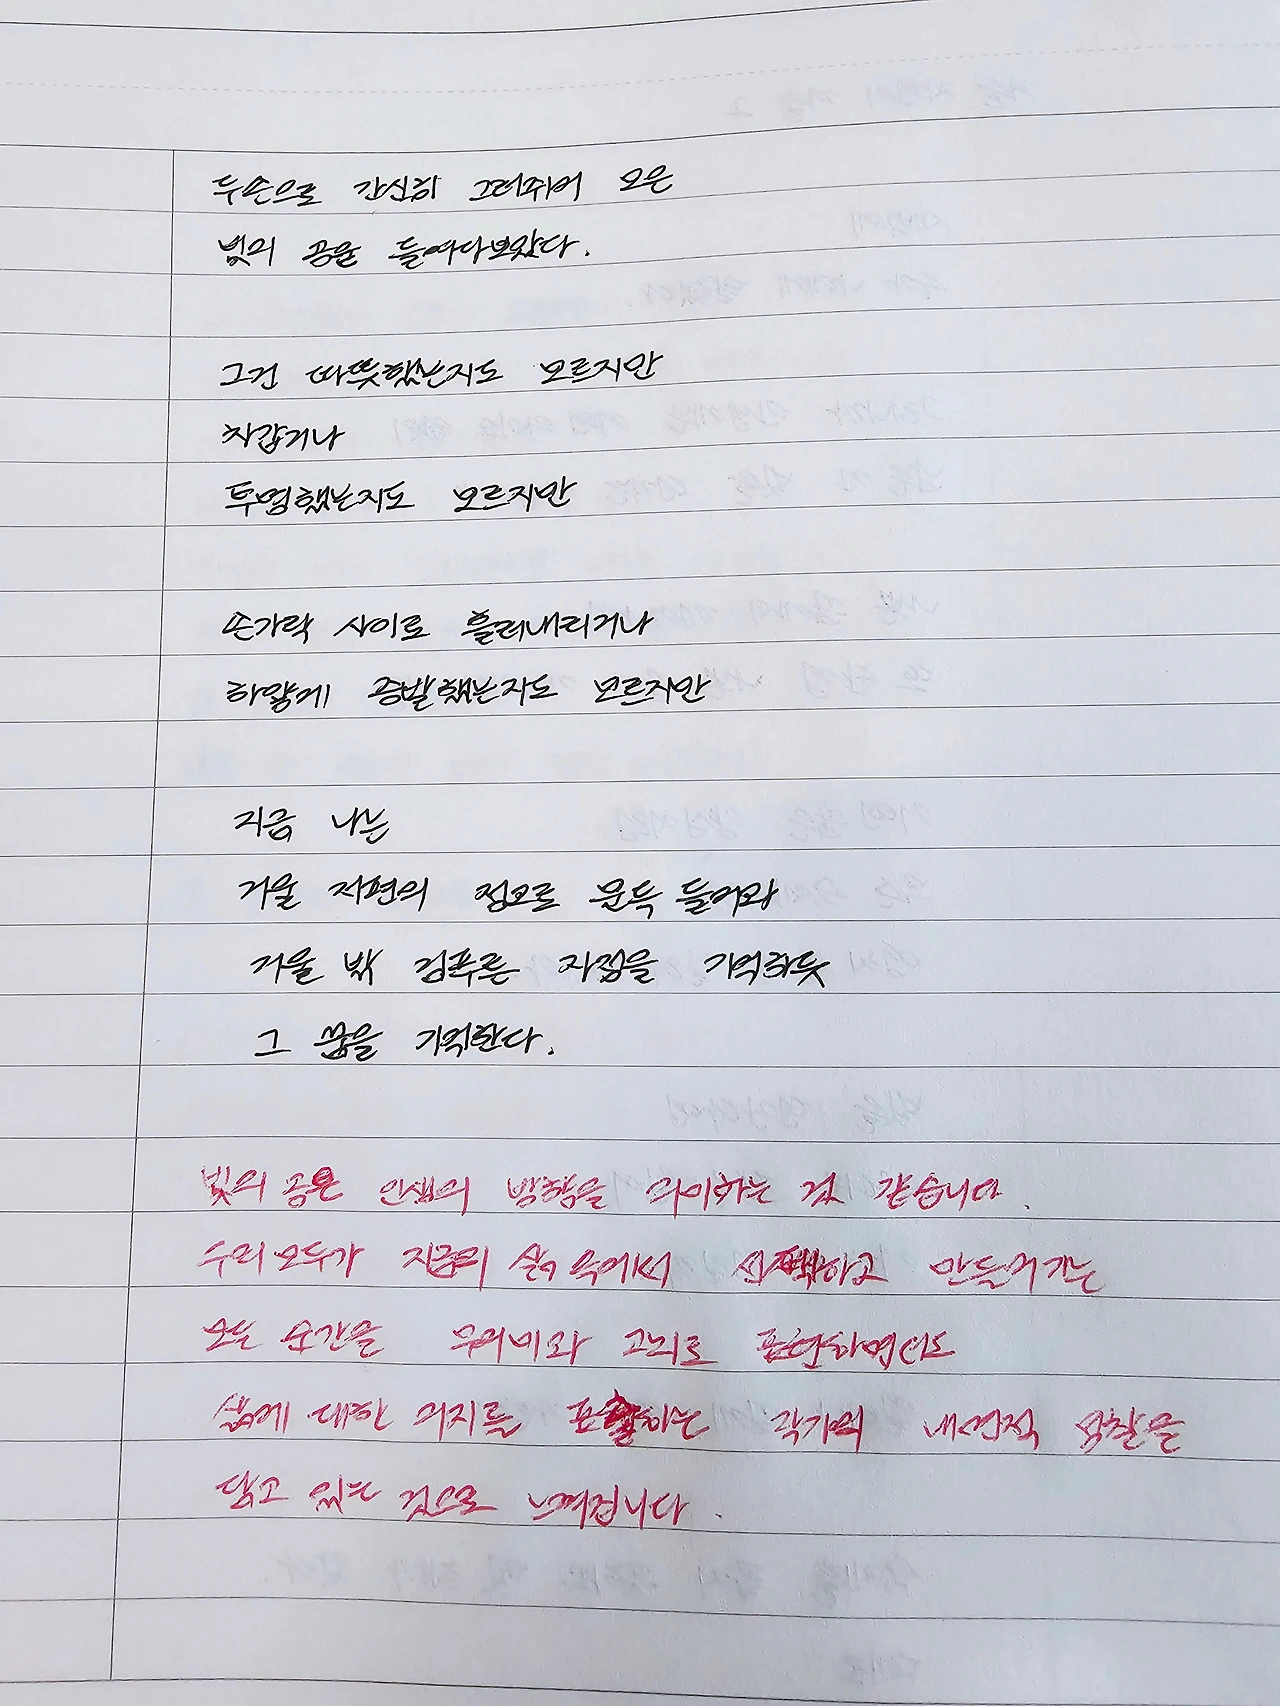 두손으로 간신히 그러쥐어 모은
빛의 공을 들여다보았다.
그건 따뜻했는지도 모르지만
차갑거나
투명했는지도 모르지만
손가락 사이로 흘러내리거나
하얗게 증발했는지도 모르지만
지금 나는
거울 저편의 정오로 문득 들어와
거울 밖 검푸른 자정을 기억하듯
그 꿈을 기억한다.
빛의 공은 인생의 방향을 의미하는 것 같습니다.
우리 모두가 지금의 삶 속에서 선택하고 만들어가는
모든 순간을 고뇌로 표현하면서도
삶에 대한 의지를 표출하는 각기의 내면적 성찰을
담고 있는 것으로 느껴집니다.